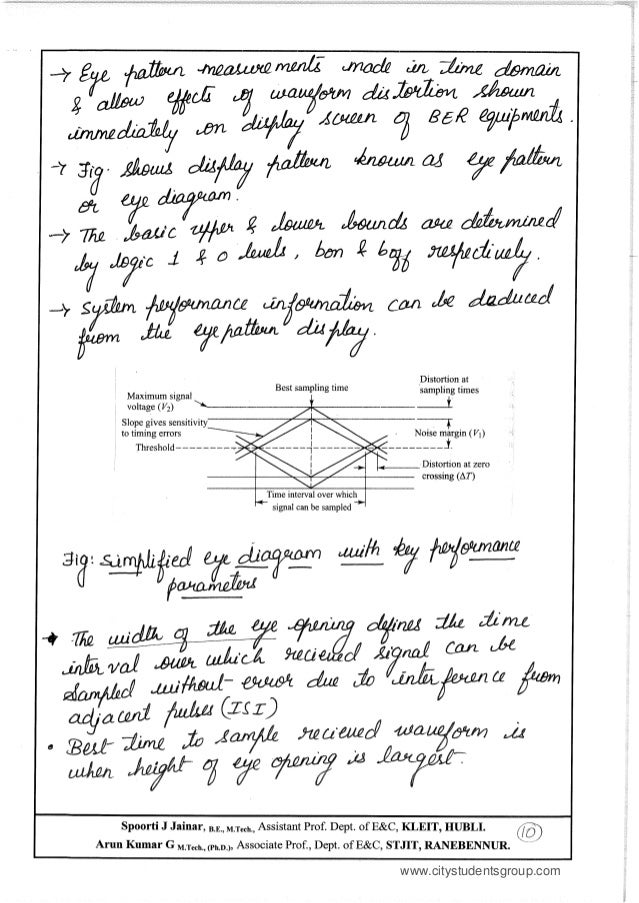 → Eye pattern measurements made in time domain
& allow effects of waveform distortion shown
immediately on display screen of BER equipments.
→ Fig. shows display pattern known as eye pattern
or eye diagram.
→ The basic upper & lower bounds are determined
by logic 1 & 0 levels, bon & boff respectively.
→ System performance information can be deduced
from the eye pattern display.
Best sampling time
Distortion at
sampling times
Maximum signal
voltage (V2)
Slope gives sensitivity
to timing errors
Noise margin (V1)
Threshold
Distortion at zero
crossing (ΔT)
Time interval over which
signal can be sampled
Fig: simplified eye diagram with key performance
parameters
→ The width of the eye opening defines the time
interval over which recieved signal can be
sampled without error due to interference from
adjacent pulses (ISI)
• Best time to sample recieved waveform is
when height of eye opening is largest.
Spoorti J Jainar, B.E., M.Tech., Assistant Prof. Dept. of E&C, KLEIT, HUBLI.
10
Arun Kumar G M.Tech., (Ph.D.), Associate Prof., Dept. of E&C, STJIT, RANEBENNUR.
www.citystudentsgroup.com